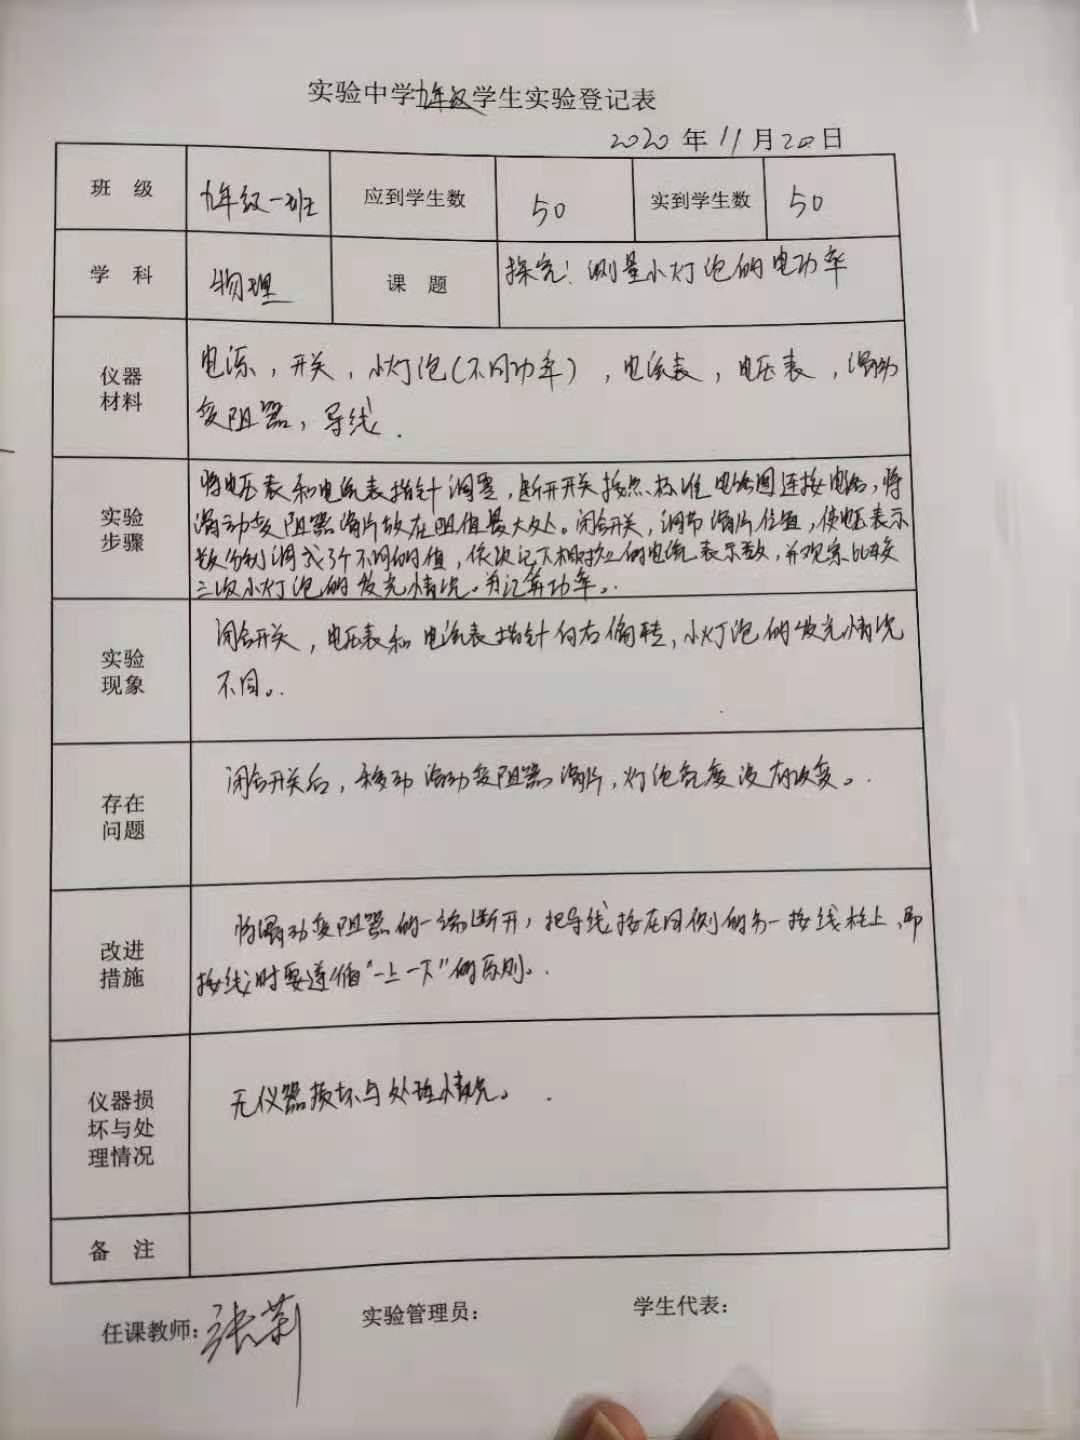 实验中学九年级学生实验登记表
2020年11月20日
班 级 九年级一班 应到学生数 50 实到学生数 50
学 科 物理 课 题 探究：测量小灯泡的电功率
仪器
材料
电源，开关，小灯泡（不同功率），电流表，电压表，滑动
变阻器，导线.
实验
步骤
将电压表和电流表指针调零，断开开关按照标准电路图连接电路，将
滑动变阻器滑片放在阻值最大处。闭合开关，调节滑片位置，使电压表示
数分别调成3个不同的值，依次记下相对应的电流表示数，并观察比较
三次小灯泡的发光情况。并计算功率。
实验
现象
闭合开关，电压表和电流表指针向右偏转，小灯泡的发光情况
不同。
存在
问题
闭合开关后，移动滑动变阻器滑片，灯泡亮度没有改变。
改进
措施
将滑动变阻器的一端断开，把导线接在同侧的另一接线柱上，即
接线时要遵循“一上一下”的原则。
仪器损
坏与处
理情况
无仪器损坏与处理情况。
备 注
任课教师：张莉 实验管理员： 学生代表：